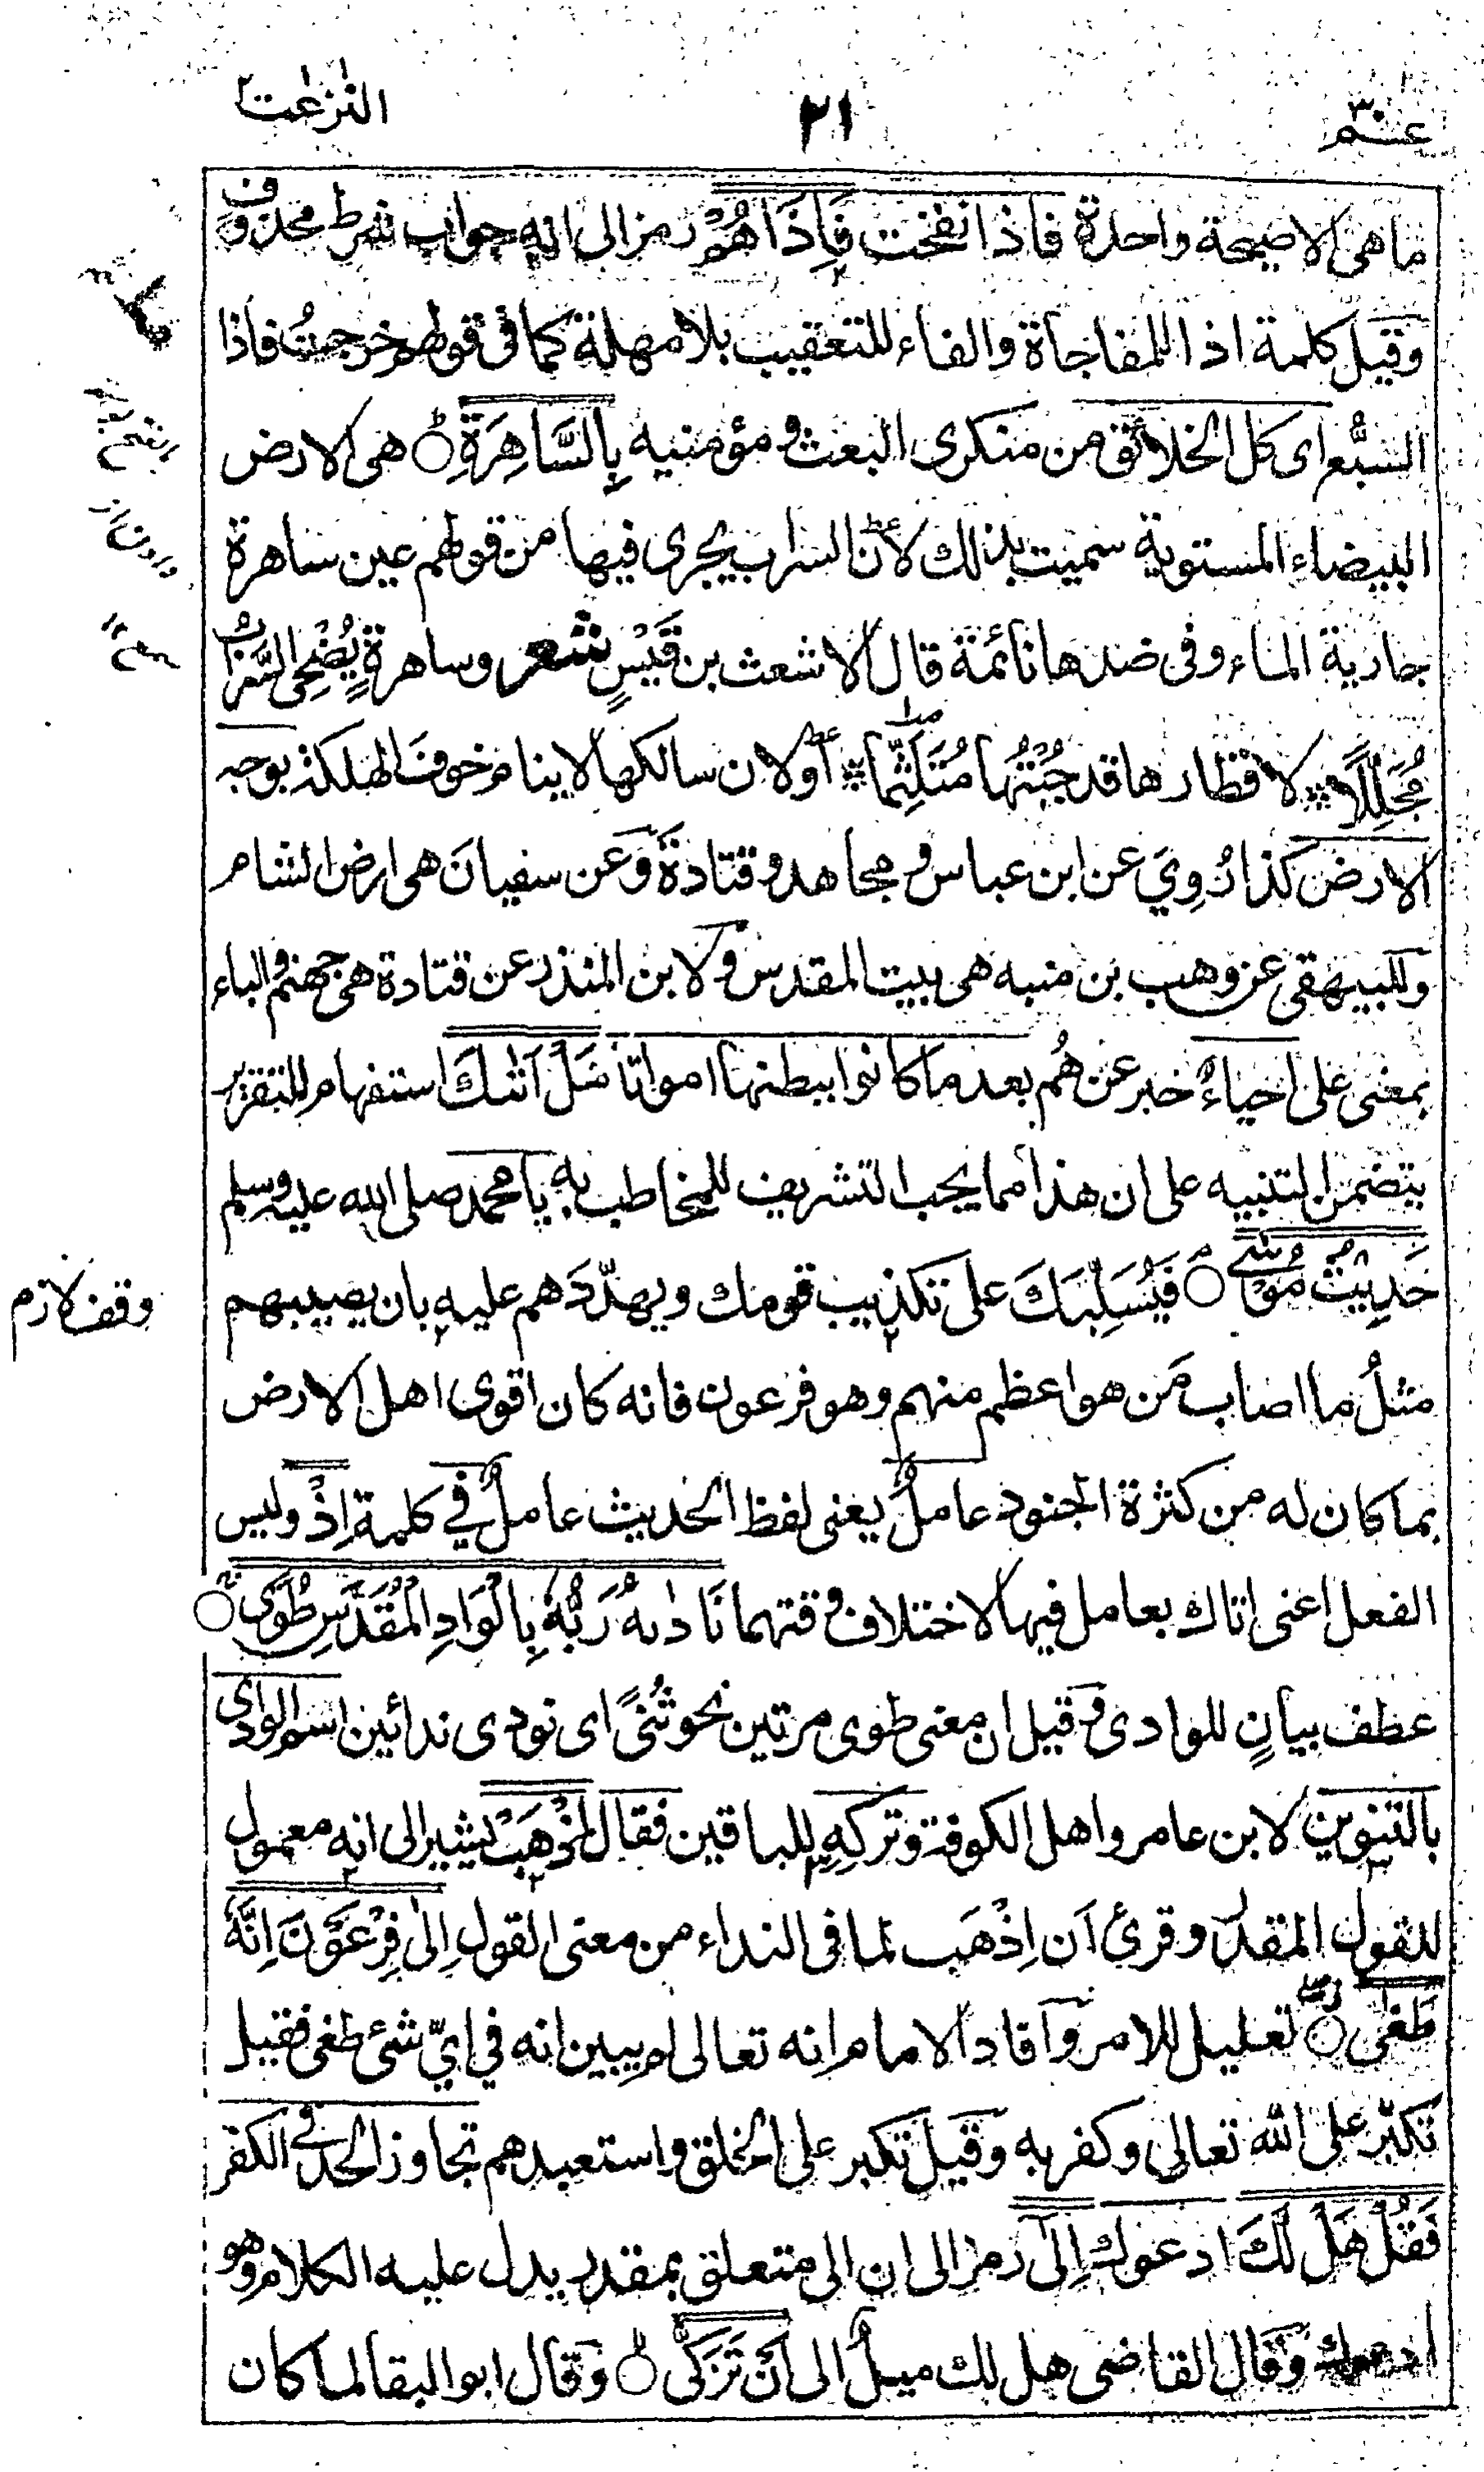 عم ٣٠
٢١
النزعت ٢
ما هى الا صيحة واحدة فاذا نفخت فَاِذَا هُمْ رمز الى انه جواب شرط محذوف
وقيل كلمة اذا للمفاجأة والفاء للتعقيب بلا مهلة كما فى قولهم خرجتُ فاذا
السبُّع اى كل الخلائق من منكرى البعث و مؤمنيه بِالسَّاهِرَةِ هى الارض
البيضاء المستوية سميت بذلك لان السراب يجرى فيها من قولهم عين ساهرة
جارية الماء وفى ضدها نائمة قال الاشعث بن قَيْسٍ شعر وساهرةٍ يُضْحِى السَّرَابُ
مُجَلِّلًا لاقطارها قد جُبْتُهَا مُتَلَثِّمًا اَو لان سالكها لا ينام خوفَ الهلكة بوجه
الارض كذا رُوِيَ عن ابن عباس و مجاهد و قتادة وَعن سفيانَ هى ارض الشام
وللبيهقى عن وهب بن منبه هى بيت المقدس ولابن المنذر عن قتادة هى جهنم والباء
بمعنى على احياءٌ خبر عن هُم بعد ما كانوا ببطنها امواتا هَلْ اَتٰىكَ استفهام للتقرير
يتضمن التنبيه على ان هذا مما يجب التشريف للمخاطب به يا محمد صلى الله عليه وسلم
حَدِيْثُ مُوْسٰى فَيُسَلِّيْكَ على تكذيب قومك ويهدّدَهم عليه بان يصيبهم
وقف لازم
مثلُ ما اصاب مَن هو اعظم منهم وهو فرعون فانه كان اقوى اهل الارض
بما كان له من كثرة الجنود عاملٌ يعنى لفظ الحديث عاملٌ في كلمة اِذْ وليس
الفعل اعنى اتاك بعامل فيها لاختلاف وقتهما نَادٰىهُ رَبُّهٗ بِالْوَادِ الْمُقَدَّسِ طُوًى
عطف بيانٍ للوادى وقيل ان معنى طوى مرتين نحو ثُنًى اى نودى ندائين اسم الوادى
بالتنوين لابن عامر واهل الكوفة وتركِهٖ للباقين فقال اِذْهَبْ يشير الى انه معمول
للقول المقدر وقرئ اَن اِذْهَب لما فى النداء من معنى القول اِلٰى فِرْعَوْنَ اِنَّهٗ
طَغٰى تعليل للامر وافاد الامام انه تعالى لم يبين انه في ايّ شئ طغى فقيل
تكبّر على الله تعالى وكفر به وقيل تكبر على الخلق واستعبدهم تجاوز الحد فى الكفر
فَقُلْ هَلْ لَّكَ ادعوك اِلٰٓى رمز الى ان الى متعلق بمقدر يدل عليه الكلام وهو
ادعوك وقال القاضى هل لك ميلٌ الى اَنْ تَزَكّٰى وقال ابو البقا لما كان